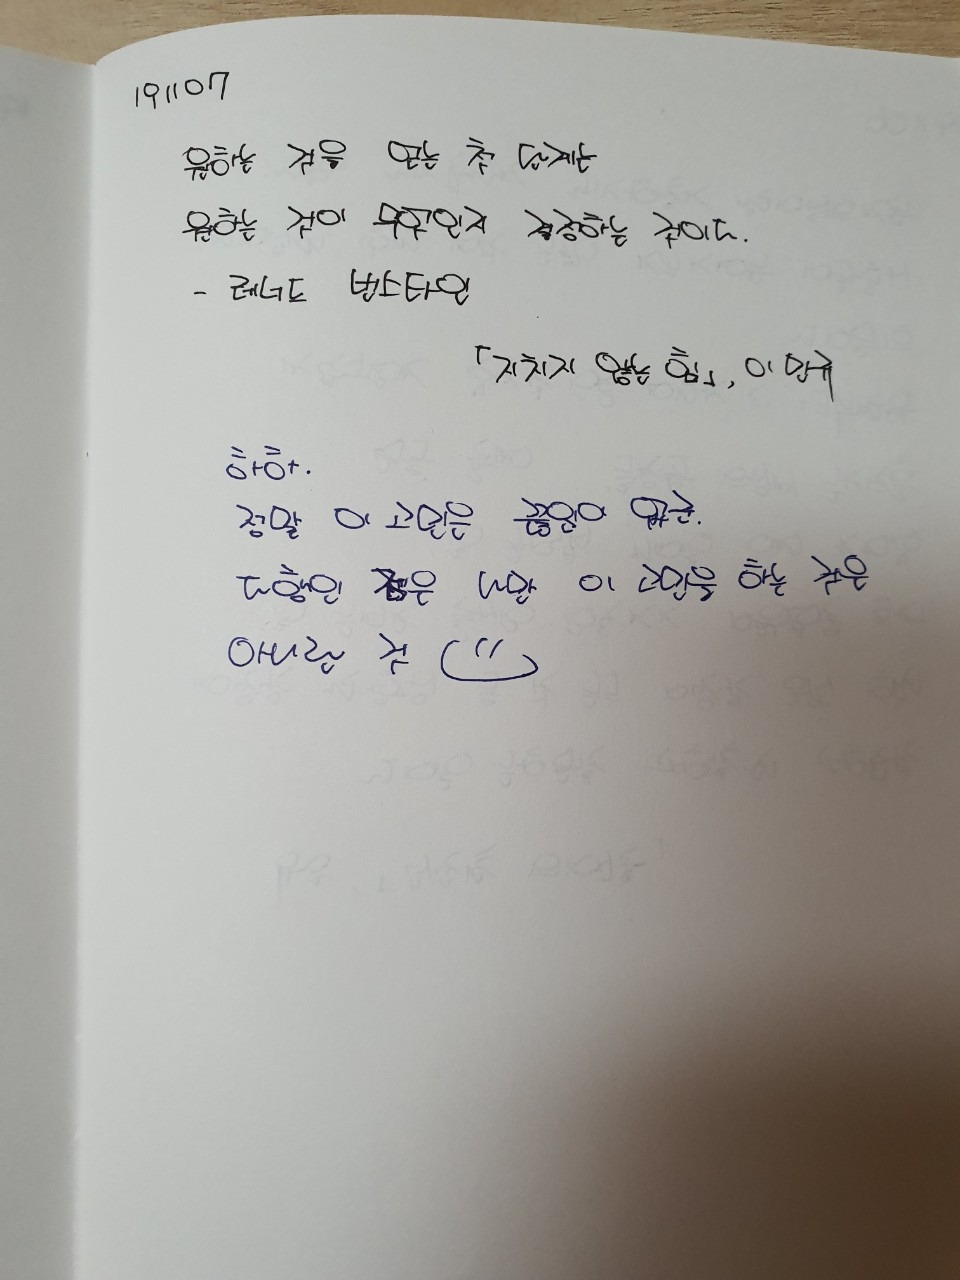 191107
원하는 것을 얻는 첫 단계는
원하는 것이 무엇인지 결정하는 것이다.
- 레너드 번스타인
「지치지 않는 힘」, 이민규
하하.
정말 이 고민은 끊임이 없군.
다행인 점은 나만 이 고민을 하는 것은
아니란 것